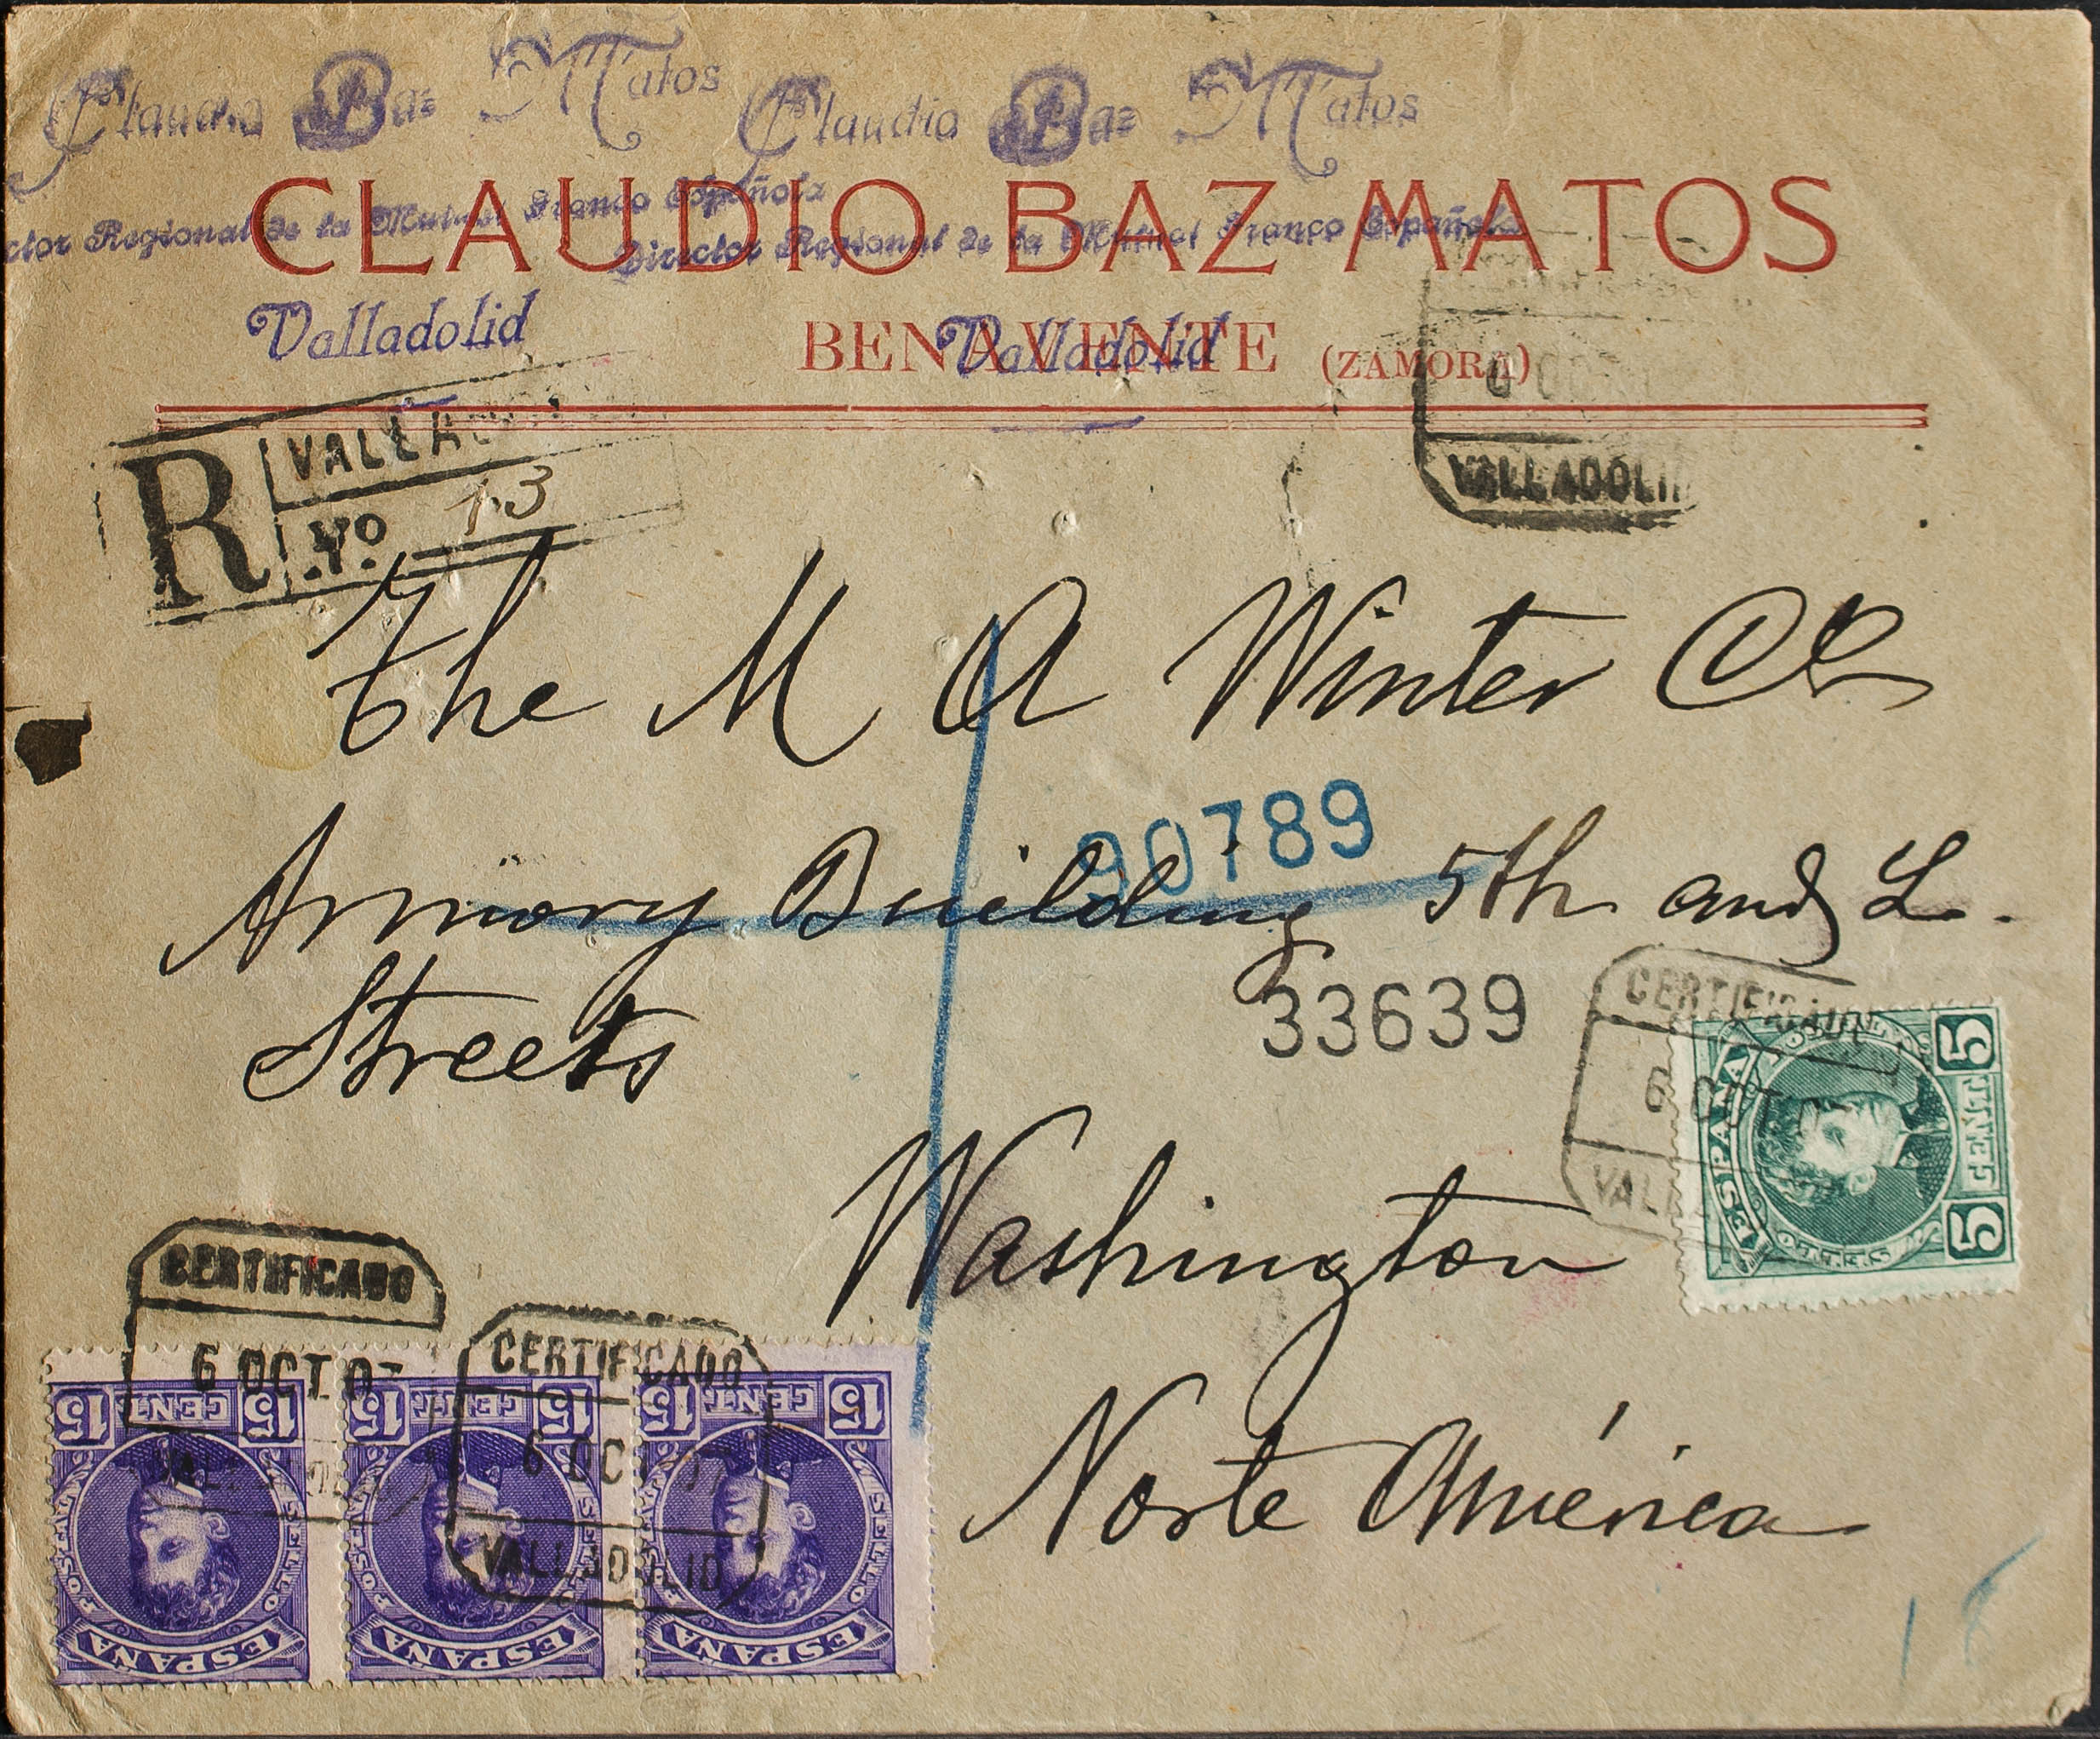 Claudio Baz Matos Claudio Baz Matos
CLAUDIO BAZ MATOS
ctor Regional de la Mutual Franco Española
Director Regional de la Mutual Franco Española
Valladolid
BENAVENTE (ZAMORA)
Valladolid
R
Nº 13
VALLADOLI
The M A Winter Co
90789
Armory Building 5th and L.
Streets
33639
CERTIFICADO
6 OCT
VAL
ESPAÑA
5 CENT 5
Washington
Norte América
CERTIFICADO
6 OCT 07
CERTIFICADO
6 OCT 07
VALLADOLID
15 CENT. 15
15 CENT. 15
15 CENT. 15
SELLO POSTAL
SELLO POSTAL
SELLO POSTAL
ESPAÑA
ESPAÑA
ESPAÑA